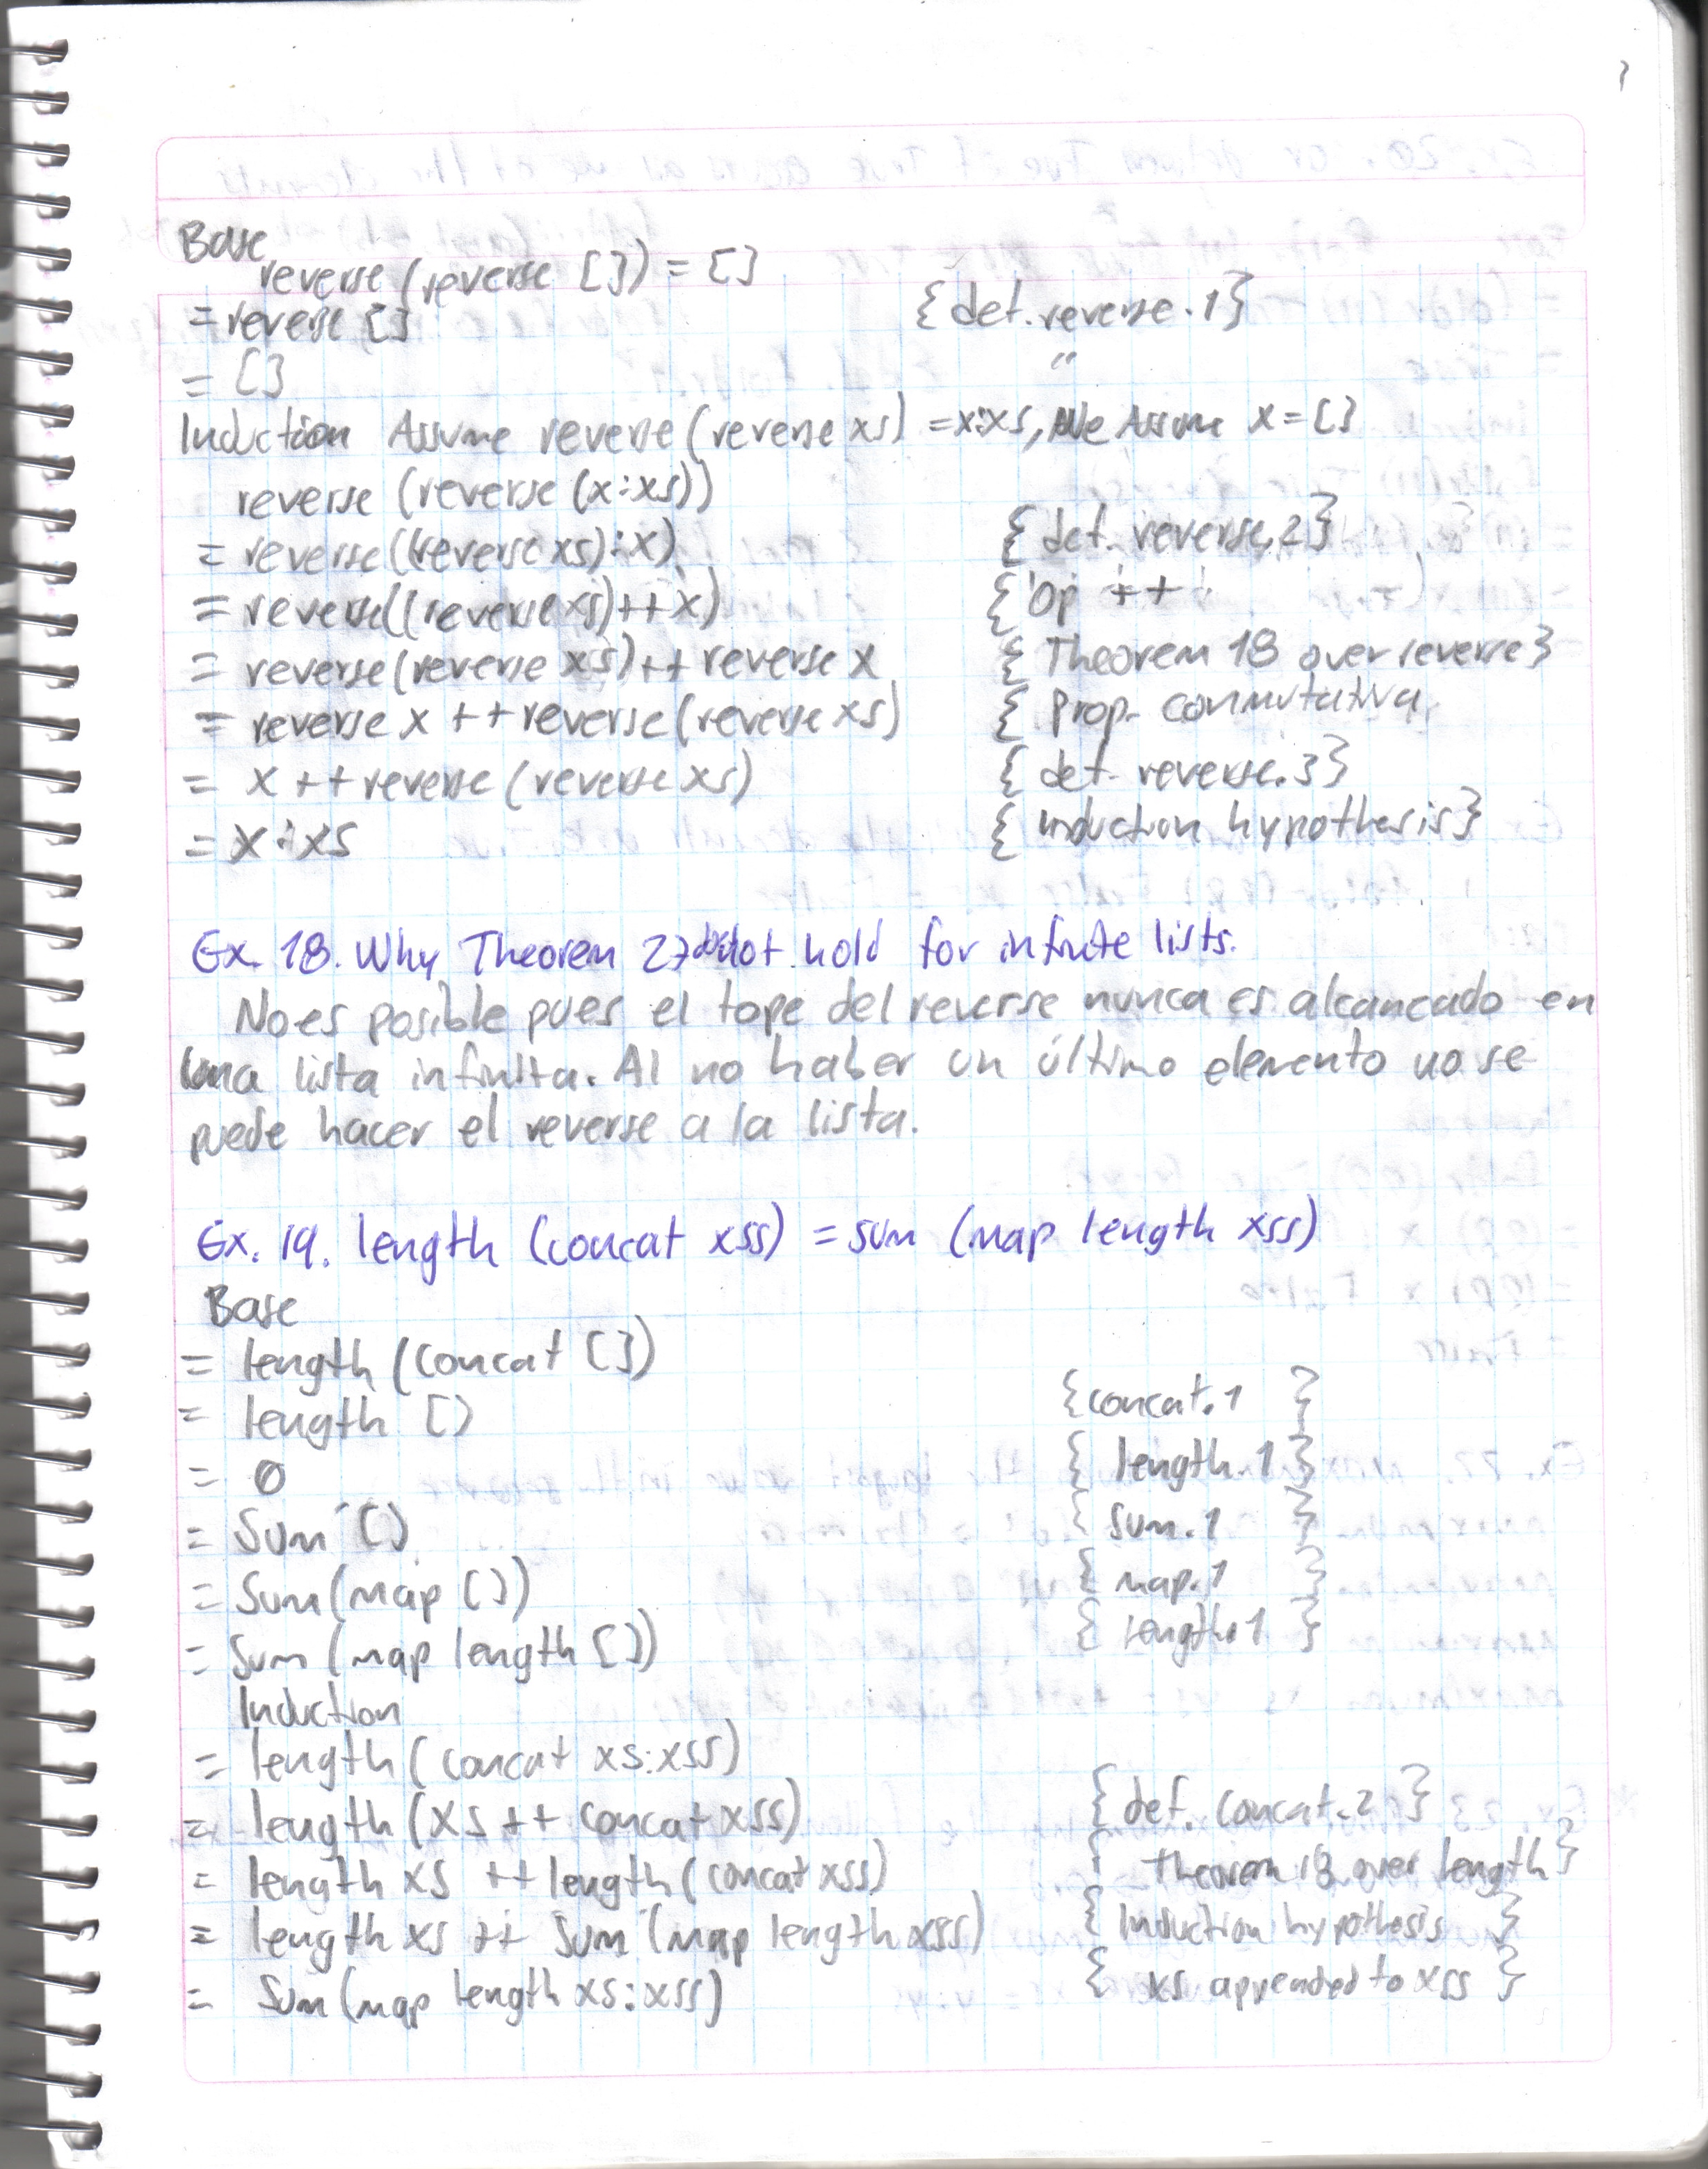 Base
reverse (reverse []) = []
= reverse [] {def. reverse.1}
= [] "
Induction Assume reverse (reverse xs) = x:xs, We Assume x = []
reverse (reverse (x:xs))
= reverse((reverse xs):x) {def. reverse.2}
= reverse((reverse xs)++x) { Op ++
= reverse(reverse xs)++ reverse x { Theorem 18 over reverse}
= reverse x ++ reverse(reverse xs) { Prop. conmutativa
= x ++ reverse (reverse xs) { def. reverse.3}
= x:xs { induction hypothesis}
Ex. 18. Why Theorem 27 not hold for infinite lists.
No es posible pues el tope del reverse nunca es alcancado en
una lista infinita. Al no haber un último elemento no se
puede hacer el reverse a la lista.
Ex. 19. length (concat xss) = sum (map length xss)
Base
= length (concat [])
= length [] {concat.1 }
= 0 { length.1 }
= Sum [] { sum.1 }
= Sum(map []) { map.1 }
= Sum (map length []) { length.1 }
Induction
= length (concat xs:xss)
= length (xs ++ concat xss) { def. concat.2 }
= length xs ++ length(concat xss) { theorem 18 over length}
= length xs ++ Sum (map length xss) { Induction hypothesis }
= Sum (map length xs:xss) { xs appended to xss }